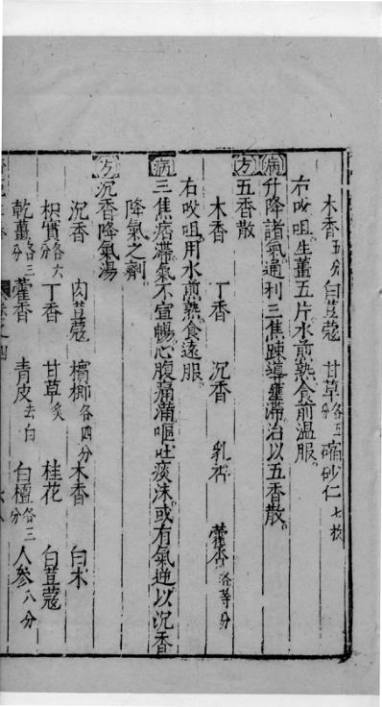 木香五分 白荳蔻 甘草各三分 縮砂仁七枚
右㕮咀生薑五片水煎熟食前温服
病 升降諸氣通利三焦踈導壅滯治以五香散
方 五香散
木香 丁香 沉香 乳香 藿香各等分
右㕮咀用水煎熟食遠服
病 三焦痞滯氣不宣暢心腹痛滿嘔吐痰沫或有氣逆以沉香
降氣之劑
方 沉香降氣湯
沉香 肉荳蔻 檳榔各四分 木香 白术
枳實各六分 丁香 甘草炙 桂花 白荳蔻
乾薑各三分 藿香 青皮去白 白檀各三分 人參八分